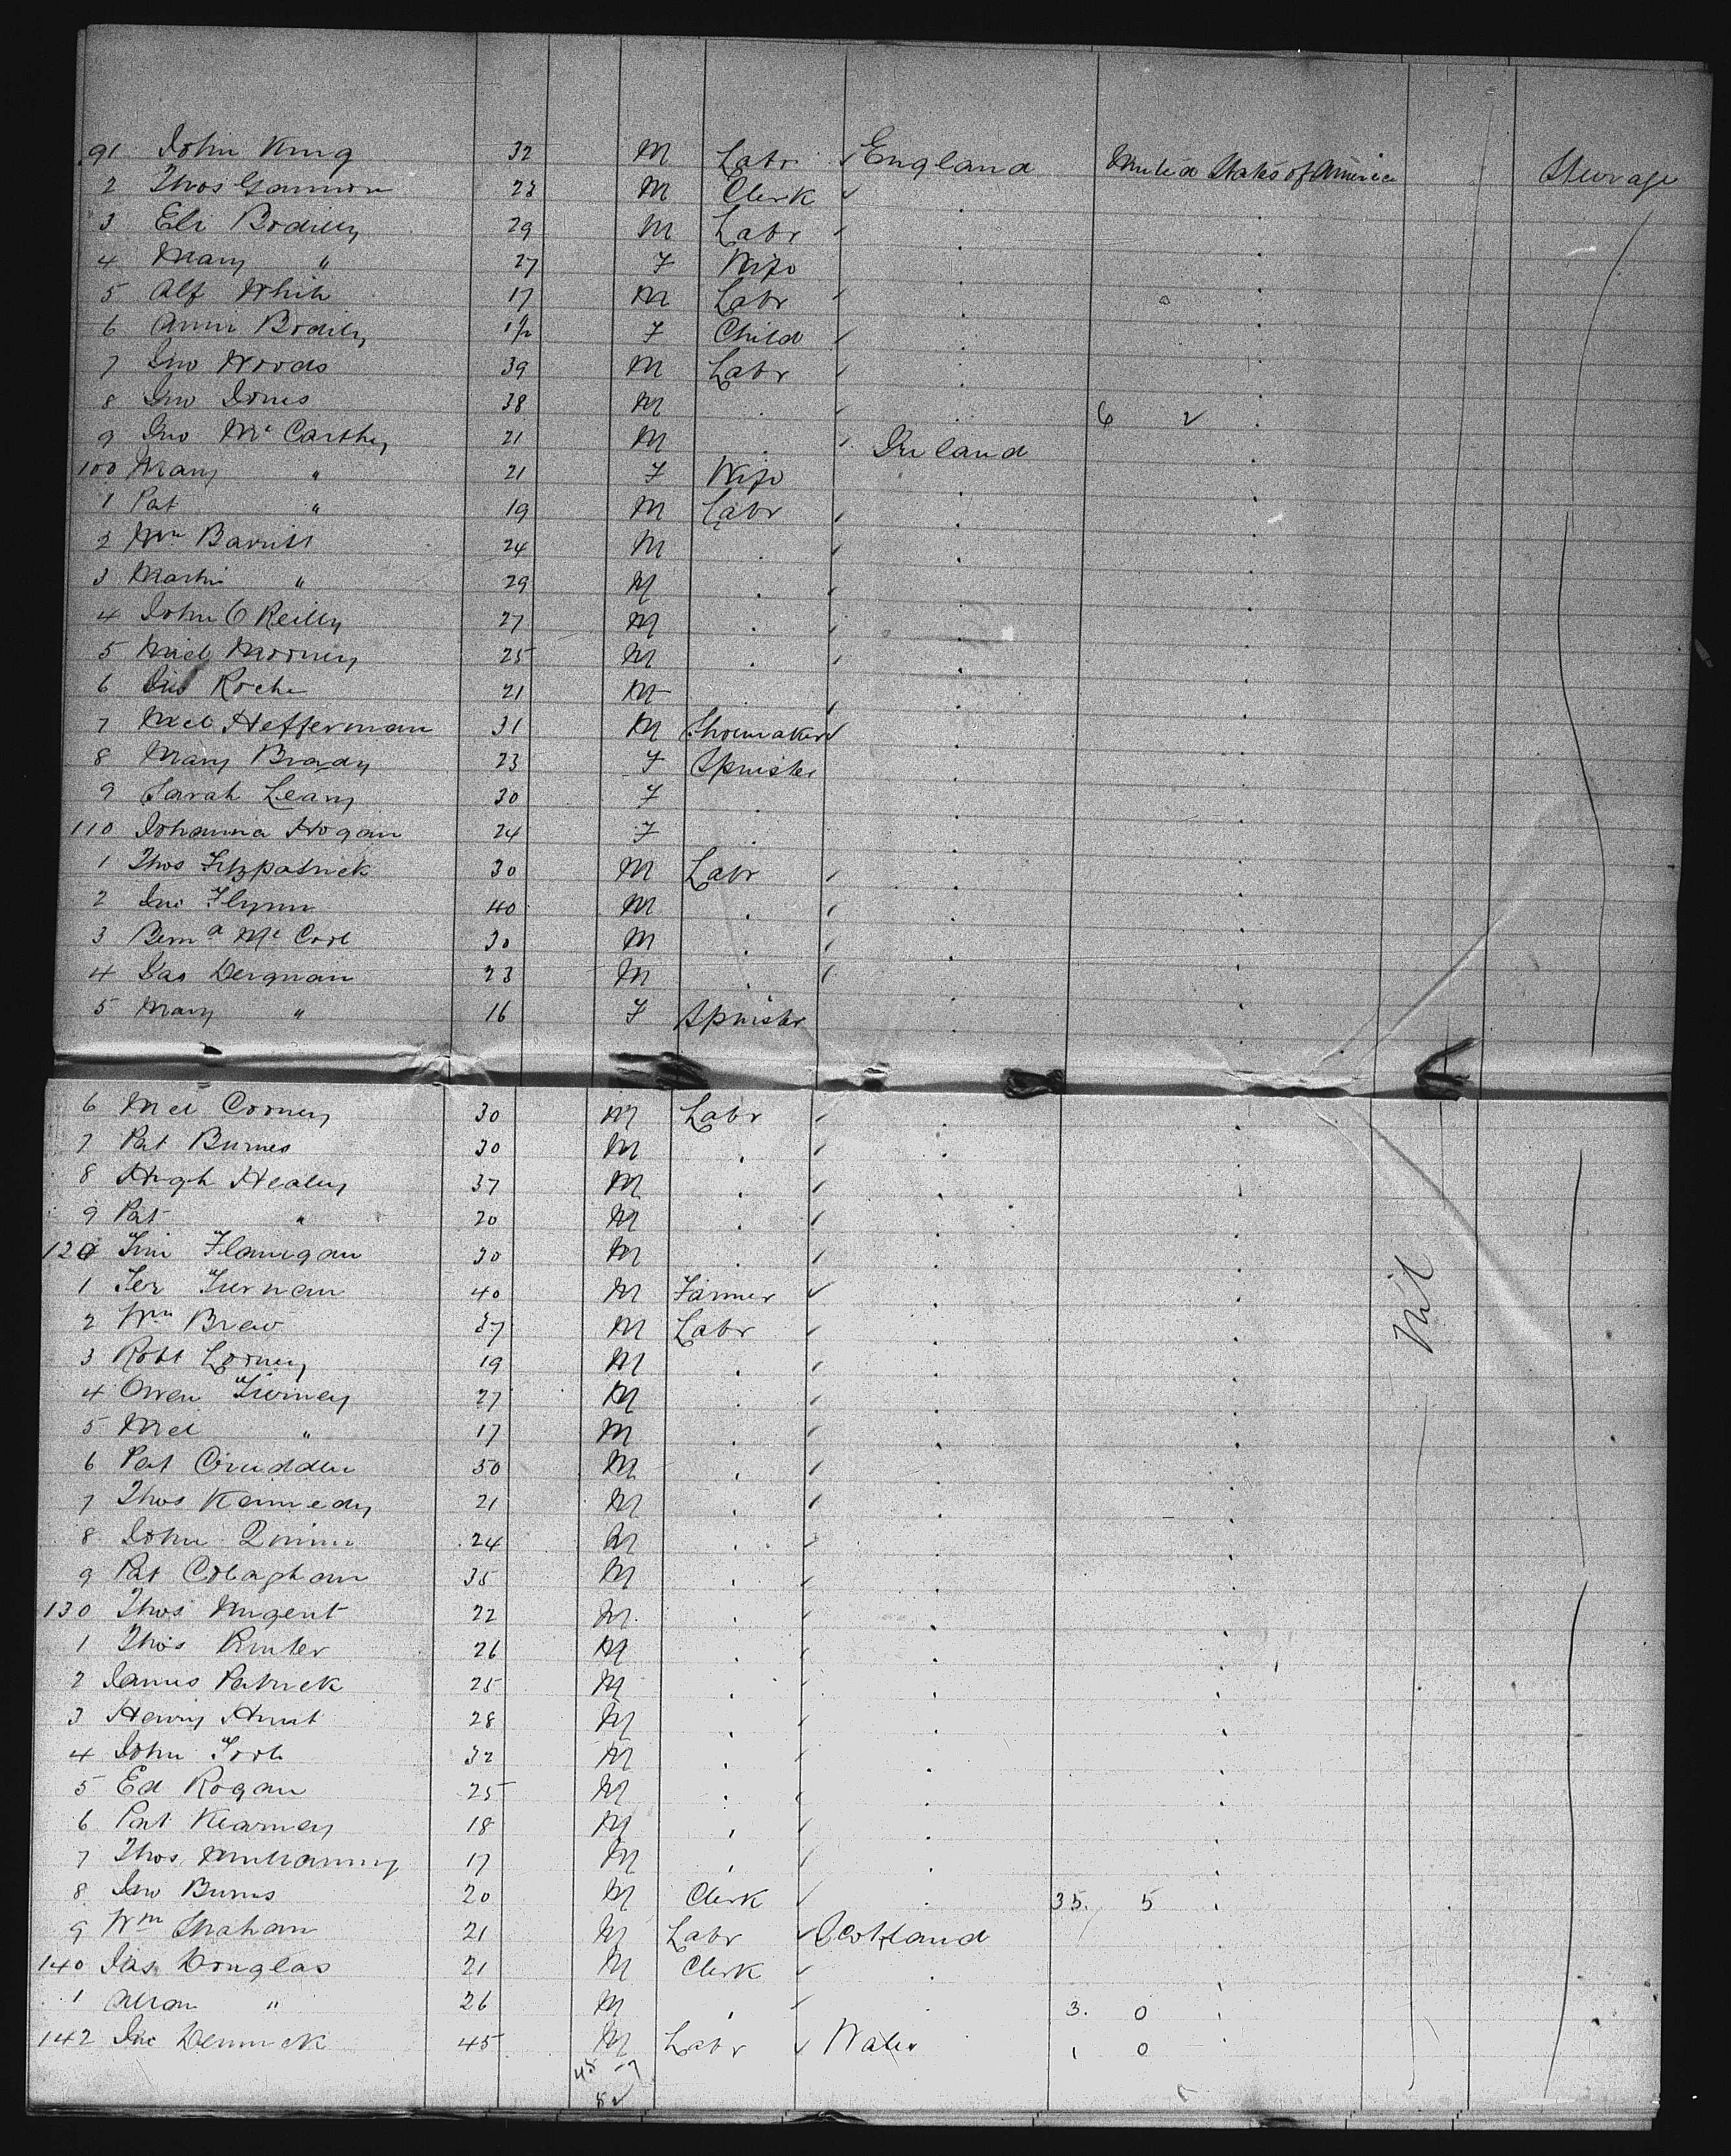 91 John King 32 M Labr ✓ England United States of America Steerage
2 Thos Gannon 28 M Clerk ✓
3 Eli Bodilly 29 M Labr ✓
4 Mary " 27 F Wife
5 Alf White 17 M Labr ✓
6 Annie Bodilly 1½ F Child ✓
7 Jno Woods 39 M Labr ✓
8 Jno Jones 38 M . ✓ 6 2
9 Jno McCarthy 21 M . ✓ Ireland
100 Mary " 21 F Wife
1 Pat " 19 M Labr ✓
2 Wm Barrett 24 M . ✓
3 Martin " 29 M . ✓
4 John O Reilly 27 M . ✓
5 Micl Mooney 25 M . ✓
6 Roche 21 M . ✓
7 Micl Hefferman 31 M Shoemaker ✓
8 Mary Brady 23 F Spinster
9 Sarah Leary 30 F .
110 Johanna Hogan 24 F .
1 Thos Fitzpatrick 30 M Labr ✓
2 Jno Flynn 40 M . ✓
3 Bernd Mc Cool 30 M . ✓
4 Jas Dergnan 23 M . ✓
5 Mary " 16 F Spinster
6 Mcl Cooney 30 M Labr ✓
7 Pat Burnes 30 M . ✓
8 Hugh Healey 37 M . ✓
9 Pat " 20 M . ✓
120 Tim Flanigan 30 M . ✓
1 Ter Tiernan 40 M Farmer ✓
2 Wm Brew 37 M Labr ✓ Nil
3 Robt Looney 19 M . ✓
4 Owen Tierney 27 M . ✓
5 Mcl " 17 M . ✓
6 Pat Crudden 50 M . ✓
7 Thos Kennedy 21 M . ✓
8 John Quinn 24 M . ✓
9 Pat Colaghan 35 M . ✓
130 Thos Nugent 22 M . ✓
1 Thos 26 M . ✓
2 James Patrick 25 M . ✓
3 Henry Hunt 28 M . ✓
4 John Toole 32 M . ✓
5 Ed Rogan 25 M . ✓
6 Pat Kearney 18 M . ✓
7 Thos 17 M . ✓
8 Jno Burns 20 M Clerk ✓ 35. 5
9 Wm Graham 21 M Labr ✓ Scotland
140 Jas Douglas 21 M Clerk ✓
1 " 26 M . ✓ 3. 0
142 Jno 45 M Labr ✓ Wales 1 0
45 7